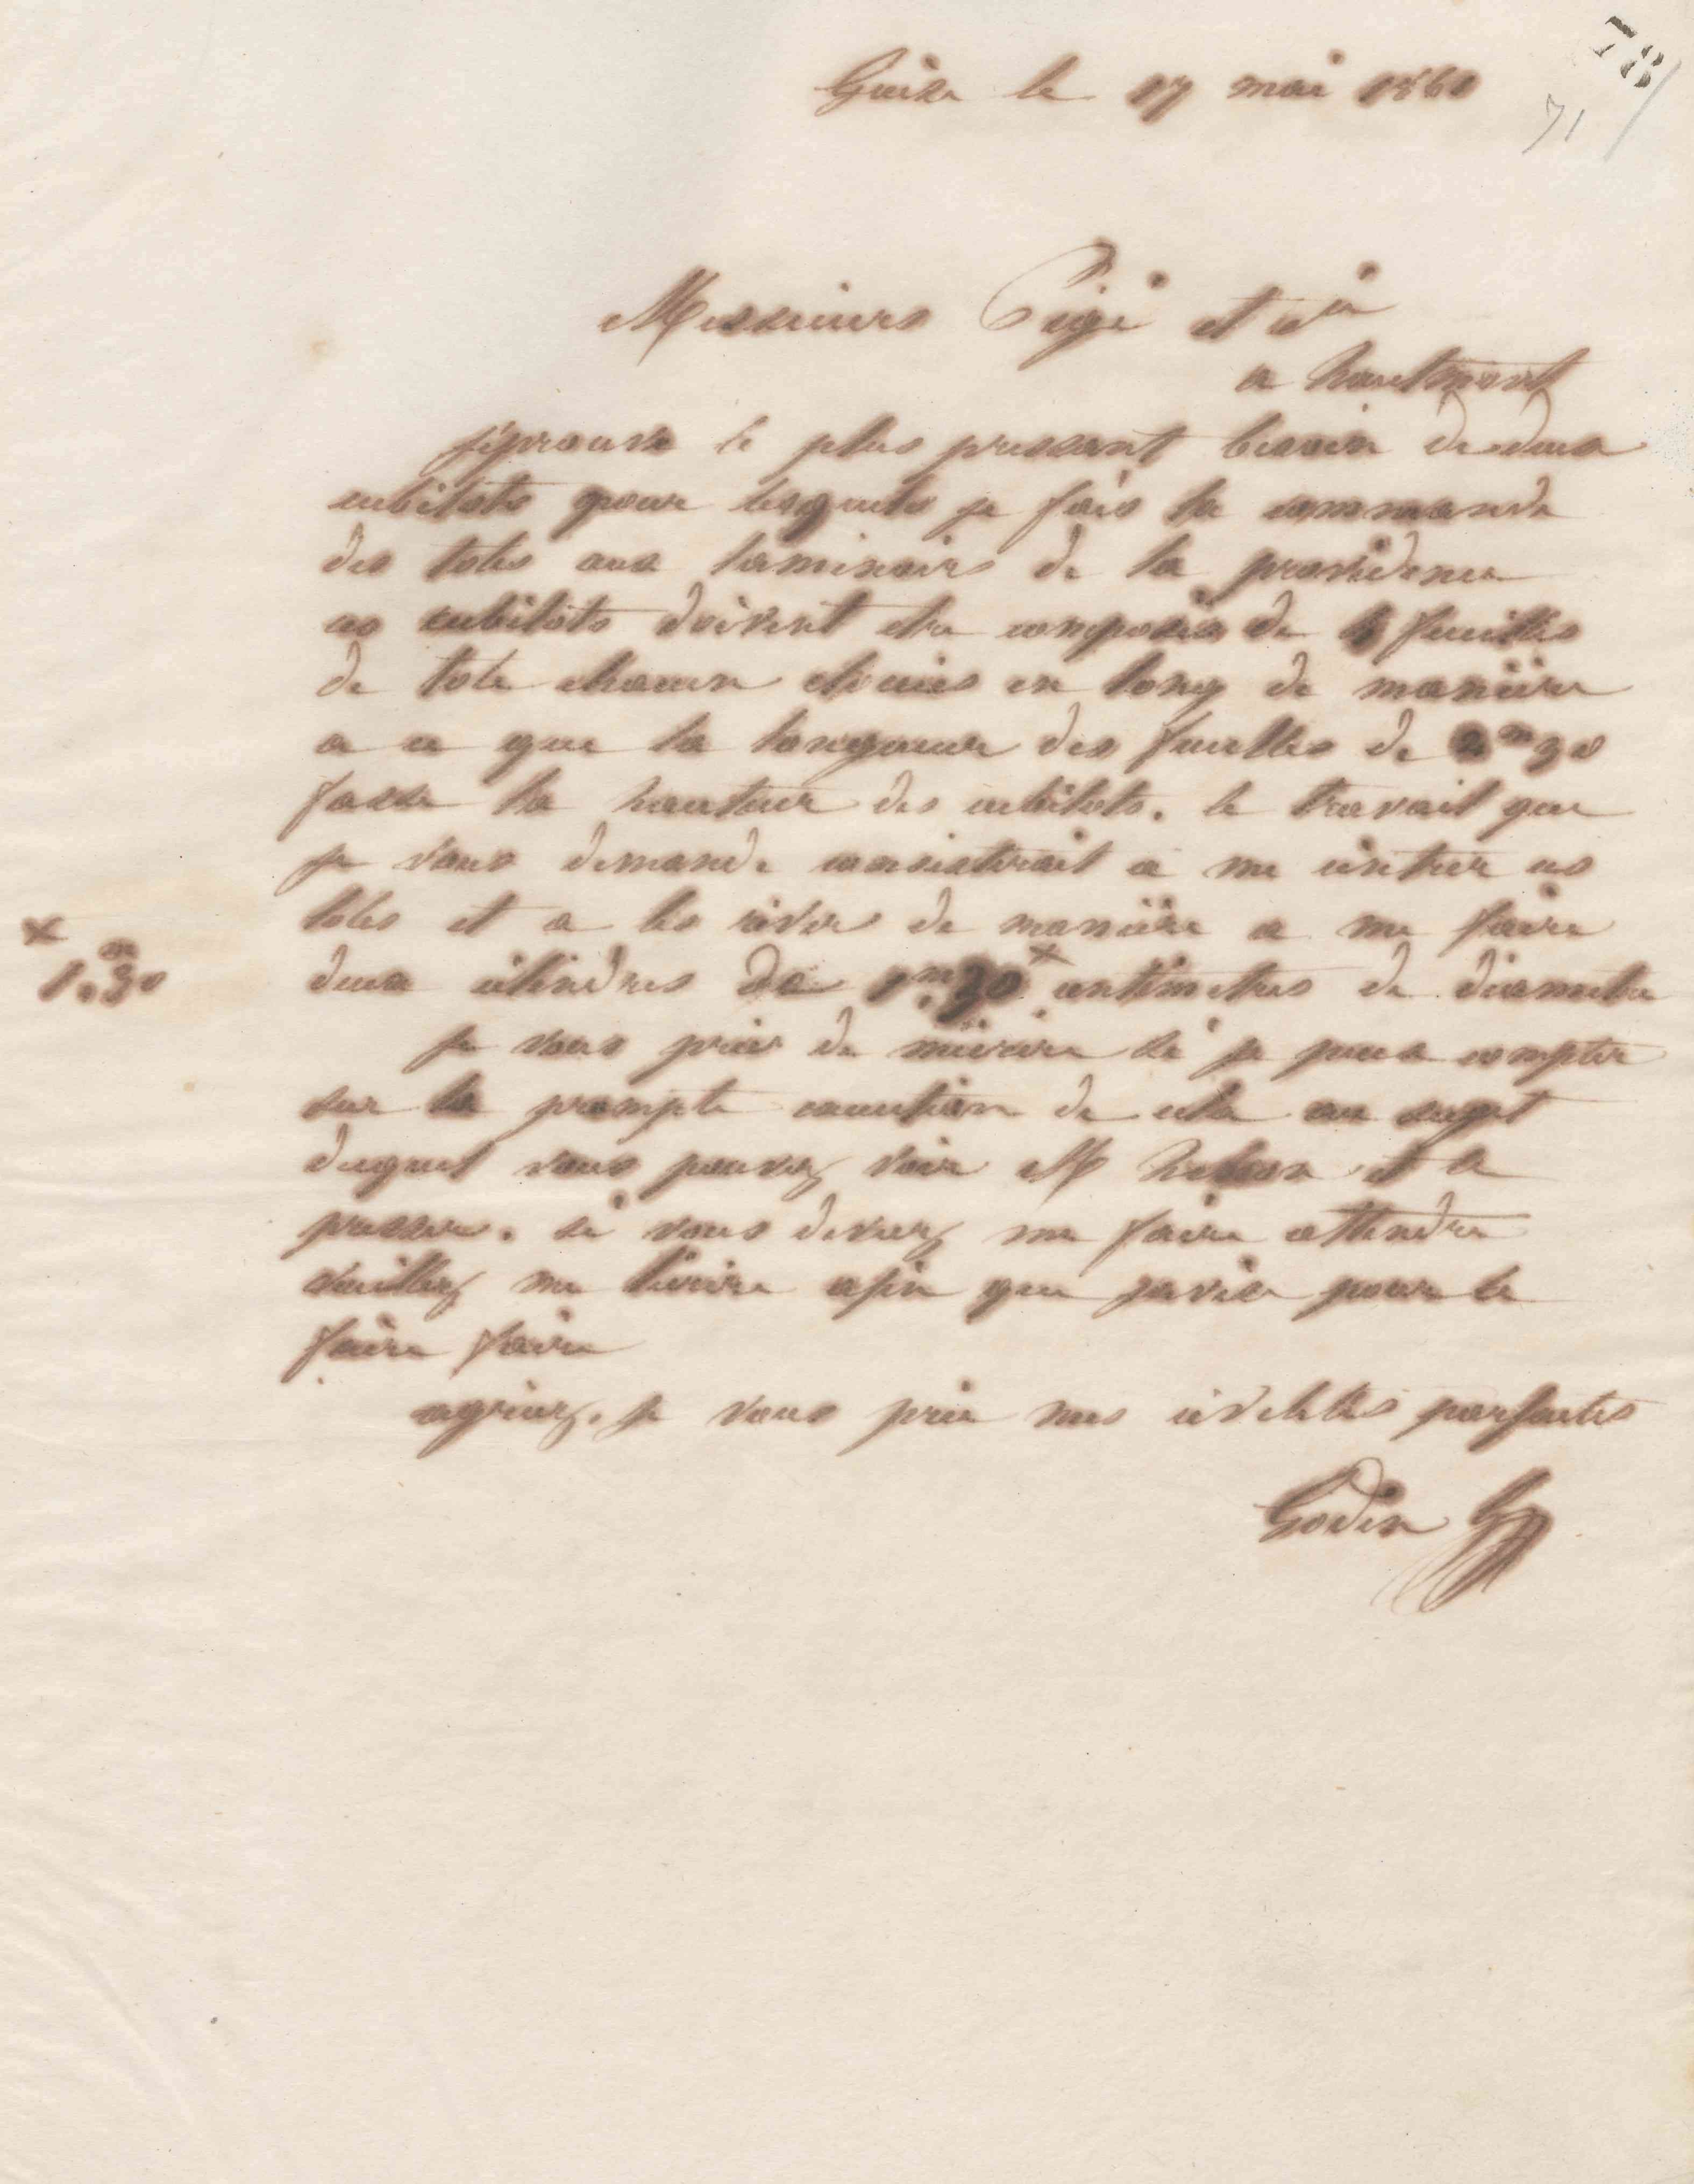 78
71
Guise le 17 mai 1860
Messieurs et Cie
a hautmont
j'éprouve le plus pressant besoin de deux
cubilots pour lesquels je fais la commande
des toles aux laminoirs de la providence
ces cubilots doivent etre composés de feuilles
de tole chacun en long de manière
a ce que la longueur des feuilles de 2m30
fasse la hauteur des cubilots. le travail que
je vous demande consisterait a me cintrer ces
toles et a les river de manière a me faire
x
1.m30
deux cilindres de 1.m30 x centimetres de diametre
je vous prie de m'écrire si je peux compter
sur la prompte execution de cela au sujet
duquel vous pouvez voir M et le
presser. si vous deviez me faire attendre
veuillez me l'écrire afin que j'avise pour le
faire faire
agréez, je vous prie mes civilités parfaites
Godin